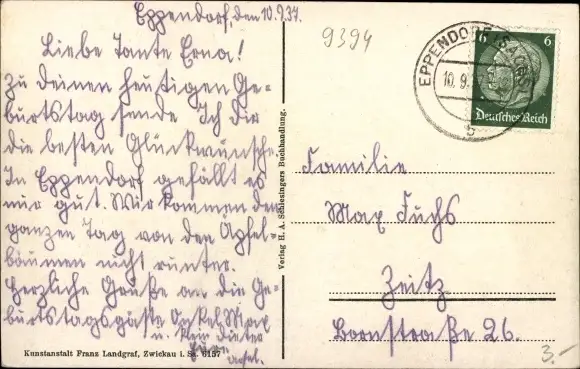 Eppendorf, den 10.9.37.
Liebe Tante Erna!
Zu deinen heutigen Ge-
burtstag sende Ich Dir
die besten Glückwünsche.
In Eppendorf gefällt es
mir gut. Wir kommen den
ganzen Tag von den Apfel-
bäumen nicht runter.
Herzliche Grüße an die Ge-
burtstagsgäste Onkel Max
u. klein Dieter
Eure
Kunstanstalt Franz Landgraf, Zwickau i. Sa. 6157
Verlag H. A. Schlesingers Buchhandlung.
9394
EPPENDORF (SACHS)
10.9.
b
6
Deutsches Reich
Familie
Max Fuchs
Zeitz
Bornstraße 26.
3.-